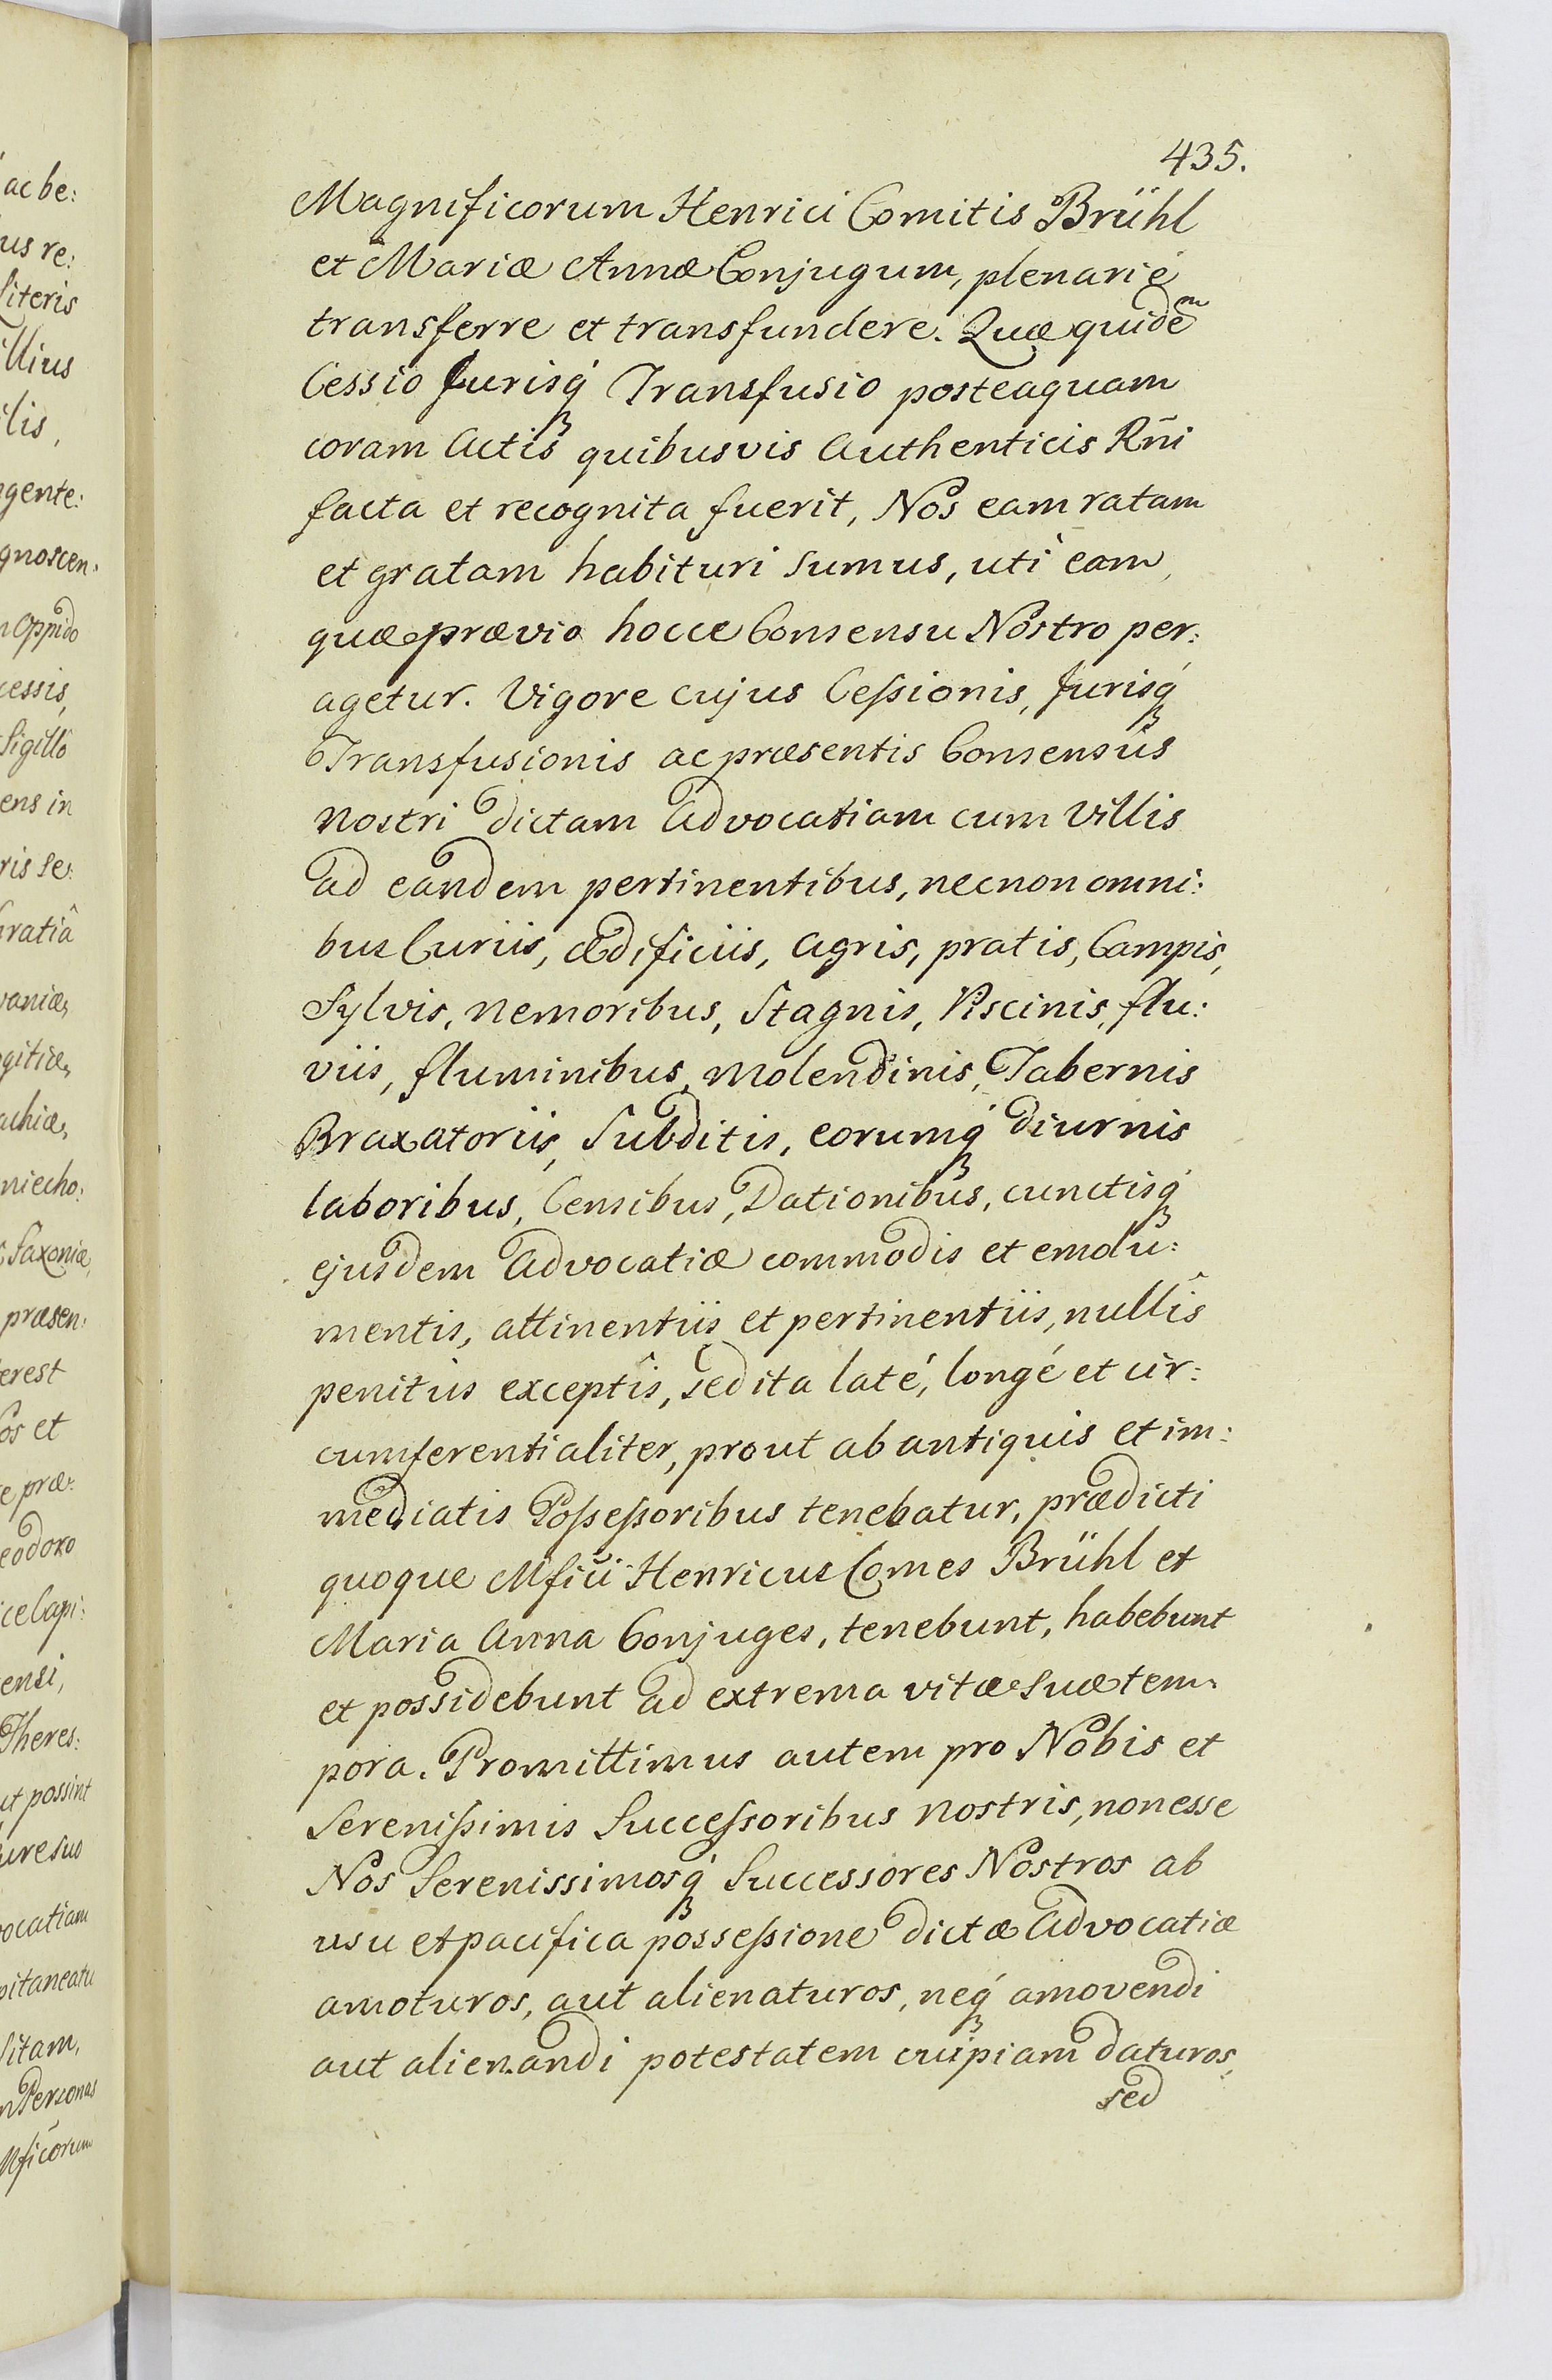 435.
Magnificorum Henrici Comitis Brühl
et Mariæ Annæ Conjugum, plenarié
transferre et transfundere. Quæ quidẽm
Cessio Jurisq́ Transfusio posteaquam
coram Actis quibusvis Authenticis Rñi
facta et recognita fuerit, Nos eam ratam
et gratam habituri sumus, uti eam,
quæ prævio hocce Consensu Nostro per:
agetur. Vigore cujus Ceſsionis, Jurisq́
Transfusionis ac præsentis Consensûs
Nostri dictam Advocatiam cum Villis
ad eandem pertinentibus, necnon omni:
bus Curiis, Ædificiis, Agris, pratis, Campis,
Sylvis, Nemoribus, Stagnis, Piscinis, flu:
viis, fluminibus, Molendinis, Tabernis
Braxatoriis, Subditis, eorumq́ diurnis
laboribus, Censibus, Dationibus, cunctisq́
ejusdem Advocatiæ commodis et emolu:
mentis, attinentiis et pertinentiis, nullîs
penitus exceptîs, sed ita laté, longé et cir:
cumferentialiter, prout ab antiquis et im:
mediatis Poſseſsoribus tenebatur, prædicti
quoque Mfici Henricus Comes Brühl et
Maria Anna Conjuges, tenebunt, habebunt
et possidebunt ad extrema vitæ suæ tem:
pora. Promittimus autem pro Nobis et
Sereniſsimis Succeſsoribus nostris, non esse
Nos Serenissimosq́ Successores Nostros ab
usu et pacifica posseſsione dictæ Advocatiæ
amoturos, aut alienaturos, neq́ amovendi
aut alienandi potestatem cuipiam daturos,
sed